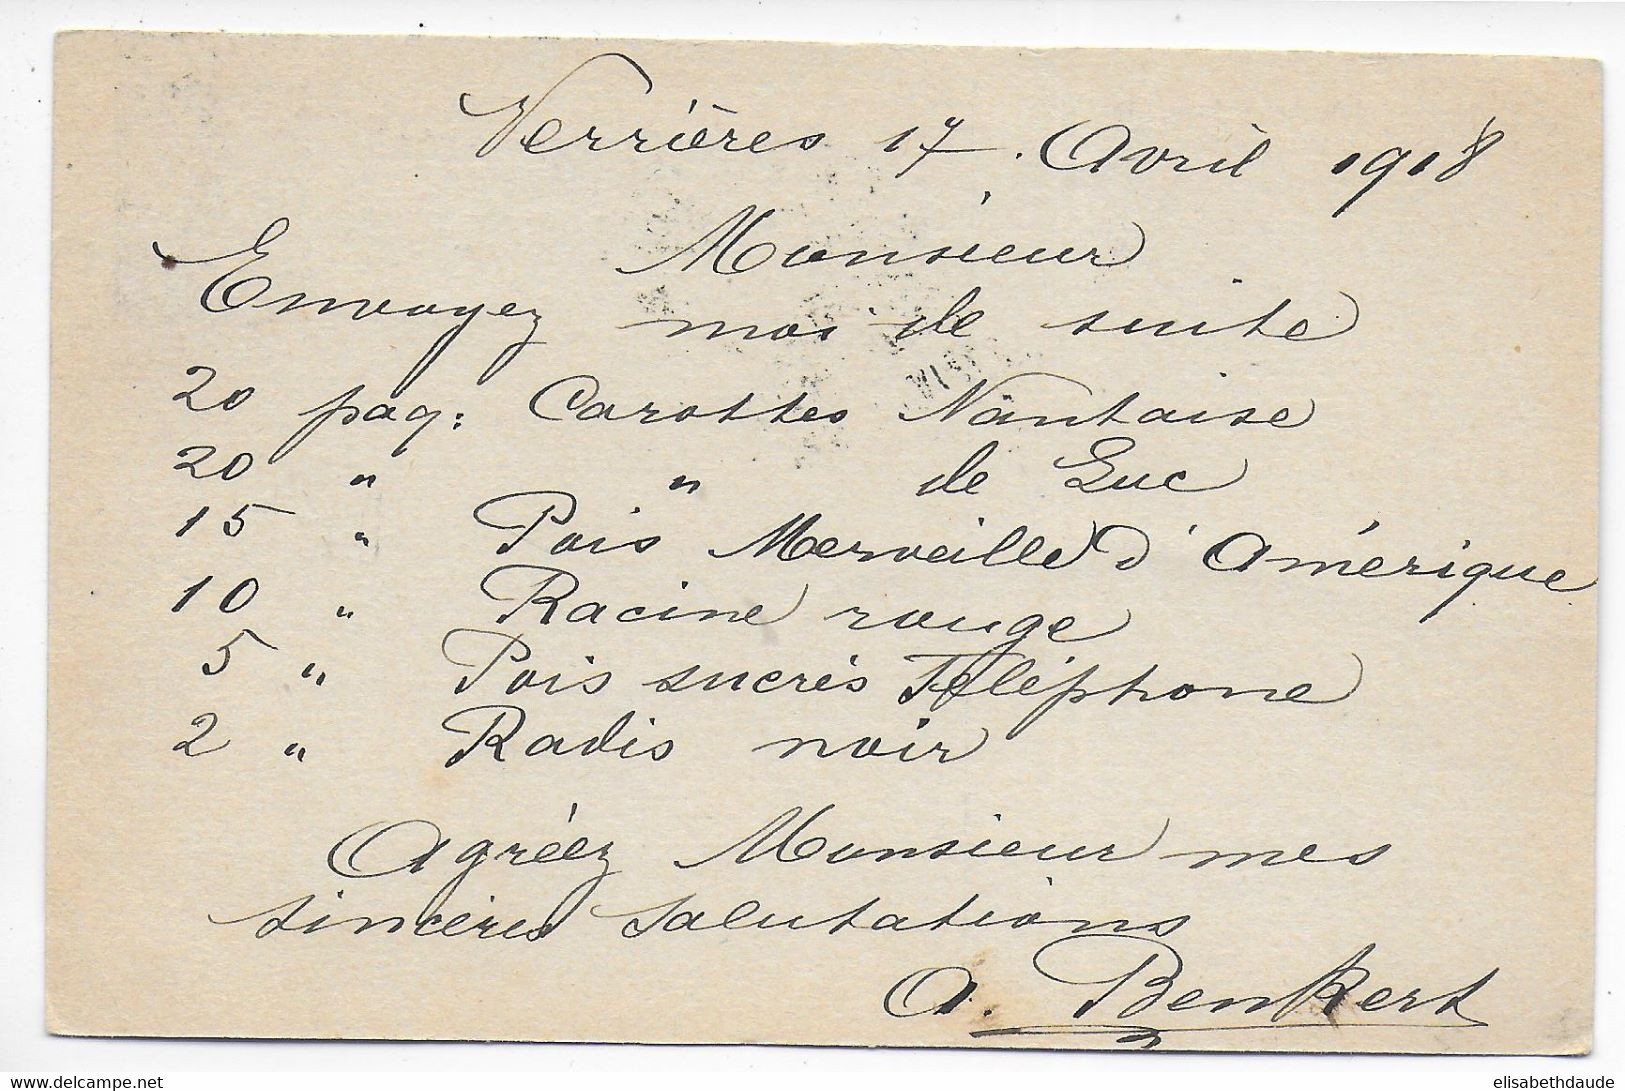 Verrières 17. Avril 1918
Monsieur
Envoyez moi de suite
20 paq: Carottes Nantaise
20 " " de Luc
15 " Pois Merveille d'Amérique
10 " Racine rouge
5 " Pois sucrés Téléphone
2 " Radis noir
Agréez Monsieur mes
sincères salutations
A. Benkert
www.delcampe.net
elisabethdaude